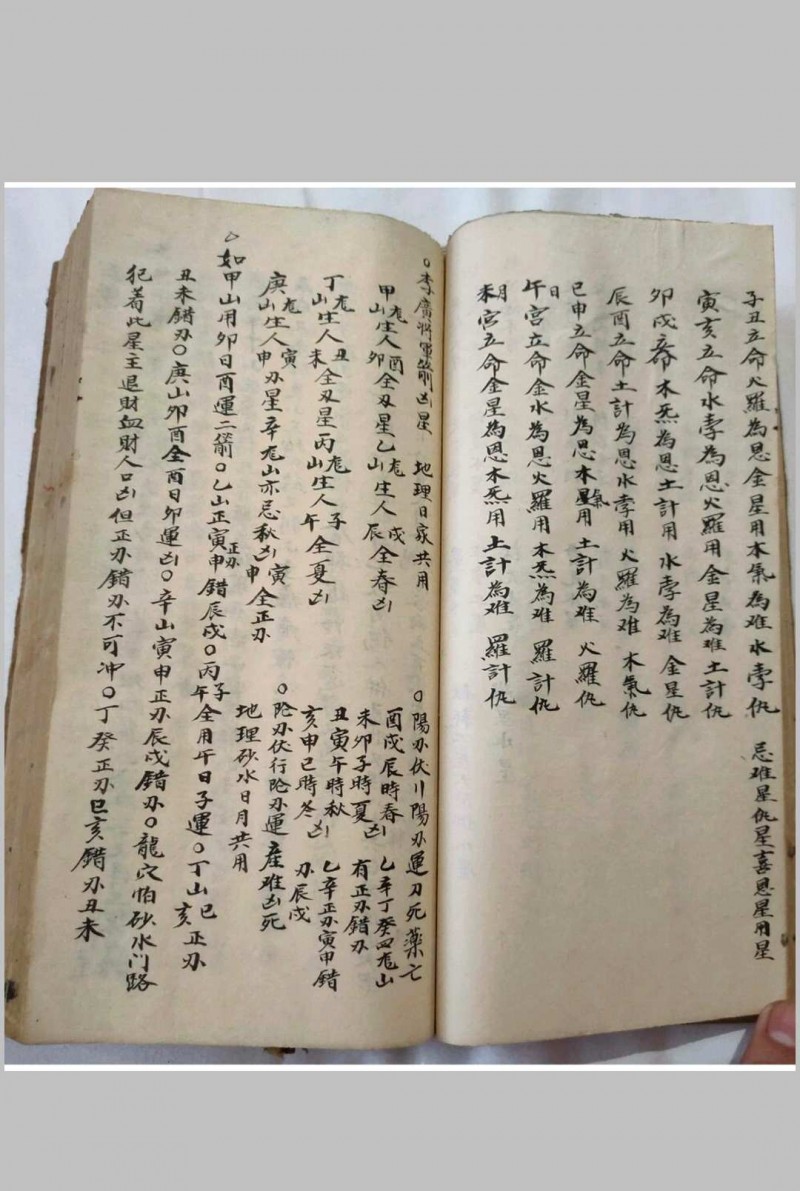 子丑立命火羅為恩金星用木氣為难水孛仇 忌难星仇星喜恩星用星
寅亥立命水孛為恩火羅用金星為难土計仇
卯戌立命木炁為恩土計用水孛為难金星仇
辰酉立命土計為恩水孛用火羅為难木氣仇
巳申立命金星為恩木氣用土計為难火羅仇
午日宮立命金水為恩火羅用木炁為难羅計仇
未月宮立命金星為恩木炁用土計為难羅計仇
○李廣將軍箭凶星 地理日家共用
甲山龙生人卯酉全刄星乙山龙生人辰戌全春凶
丁山龙生人未丑全刄星丙山龙生人午子全夏凶
庚山龙生人申寅刄星辛龙山亦忌秋凶申寅全正刄
○陽刄伏川陽刄運刀死藥亡
酉戌辰時春凶
未卯子時夏凶
丑寅午時秋凶
亥申巳時冬凶
乙辛丁癸四龙山
有正刄錯刄
乙辛正刄寅申錯
刄辰戌
○陰刄伏行陰刄運產难凶死
地理砂水日月共用
○如甲山用卯日酉運二箭○乙山正寅申正刄錯辰戌○丙午子全用午日子運○丁山巳亥正刄
丑未錯刄○庚山卯酉全酉日卯運凶○辛山寅申正刄辰戌錯刄○龍穴怕砂水门路
犯着此星主退財血財人口凶但正刄錯刄不可冲○丁癸正刄巳亥錯刄丑未